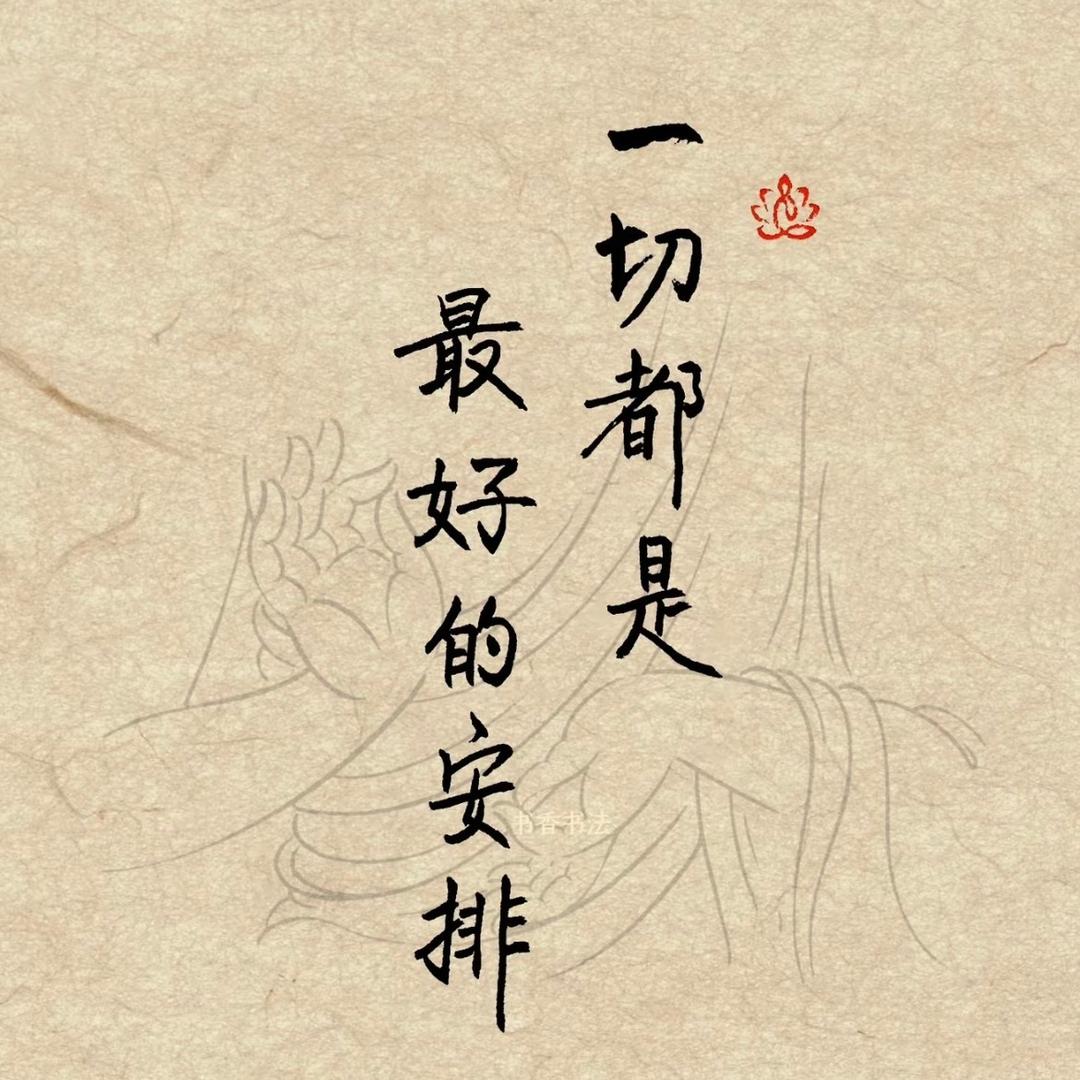 一切都是
最好的安排
书香书法